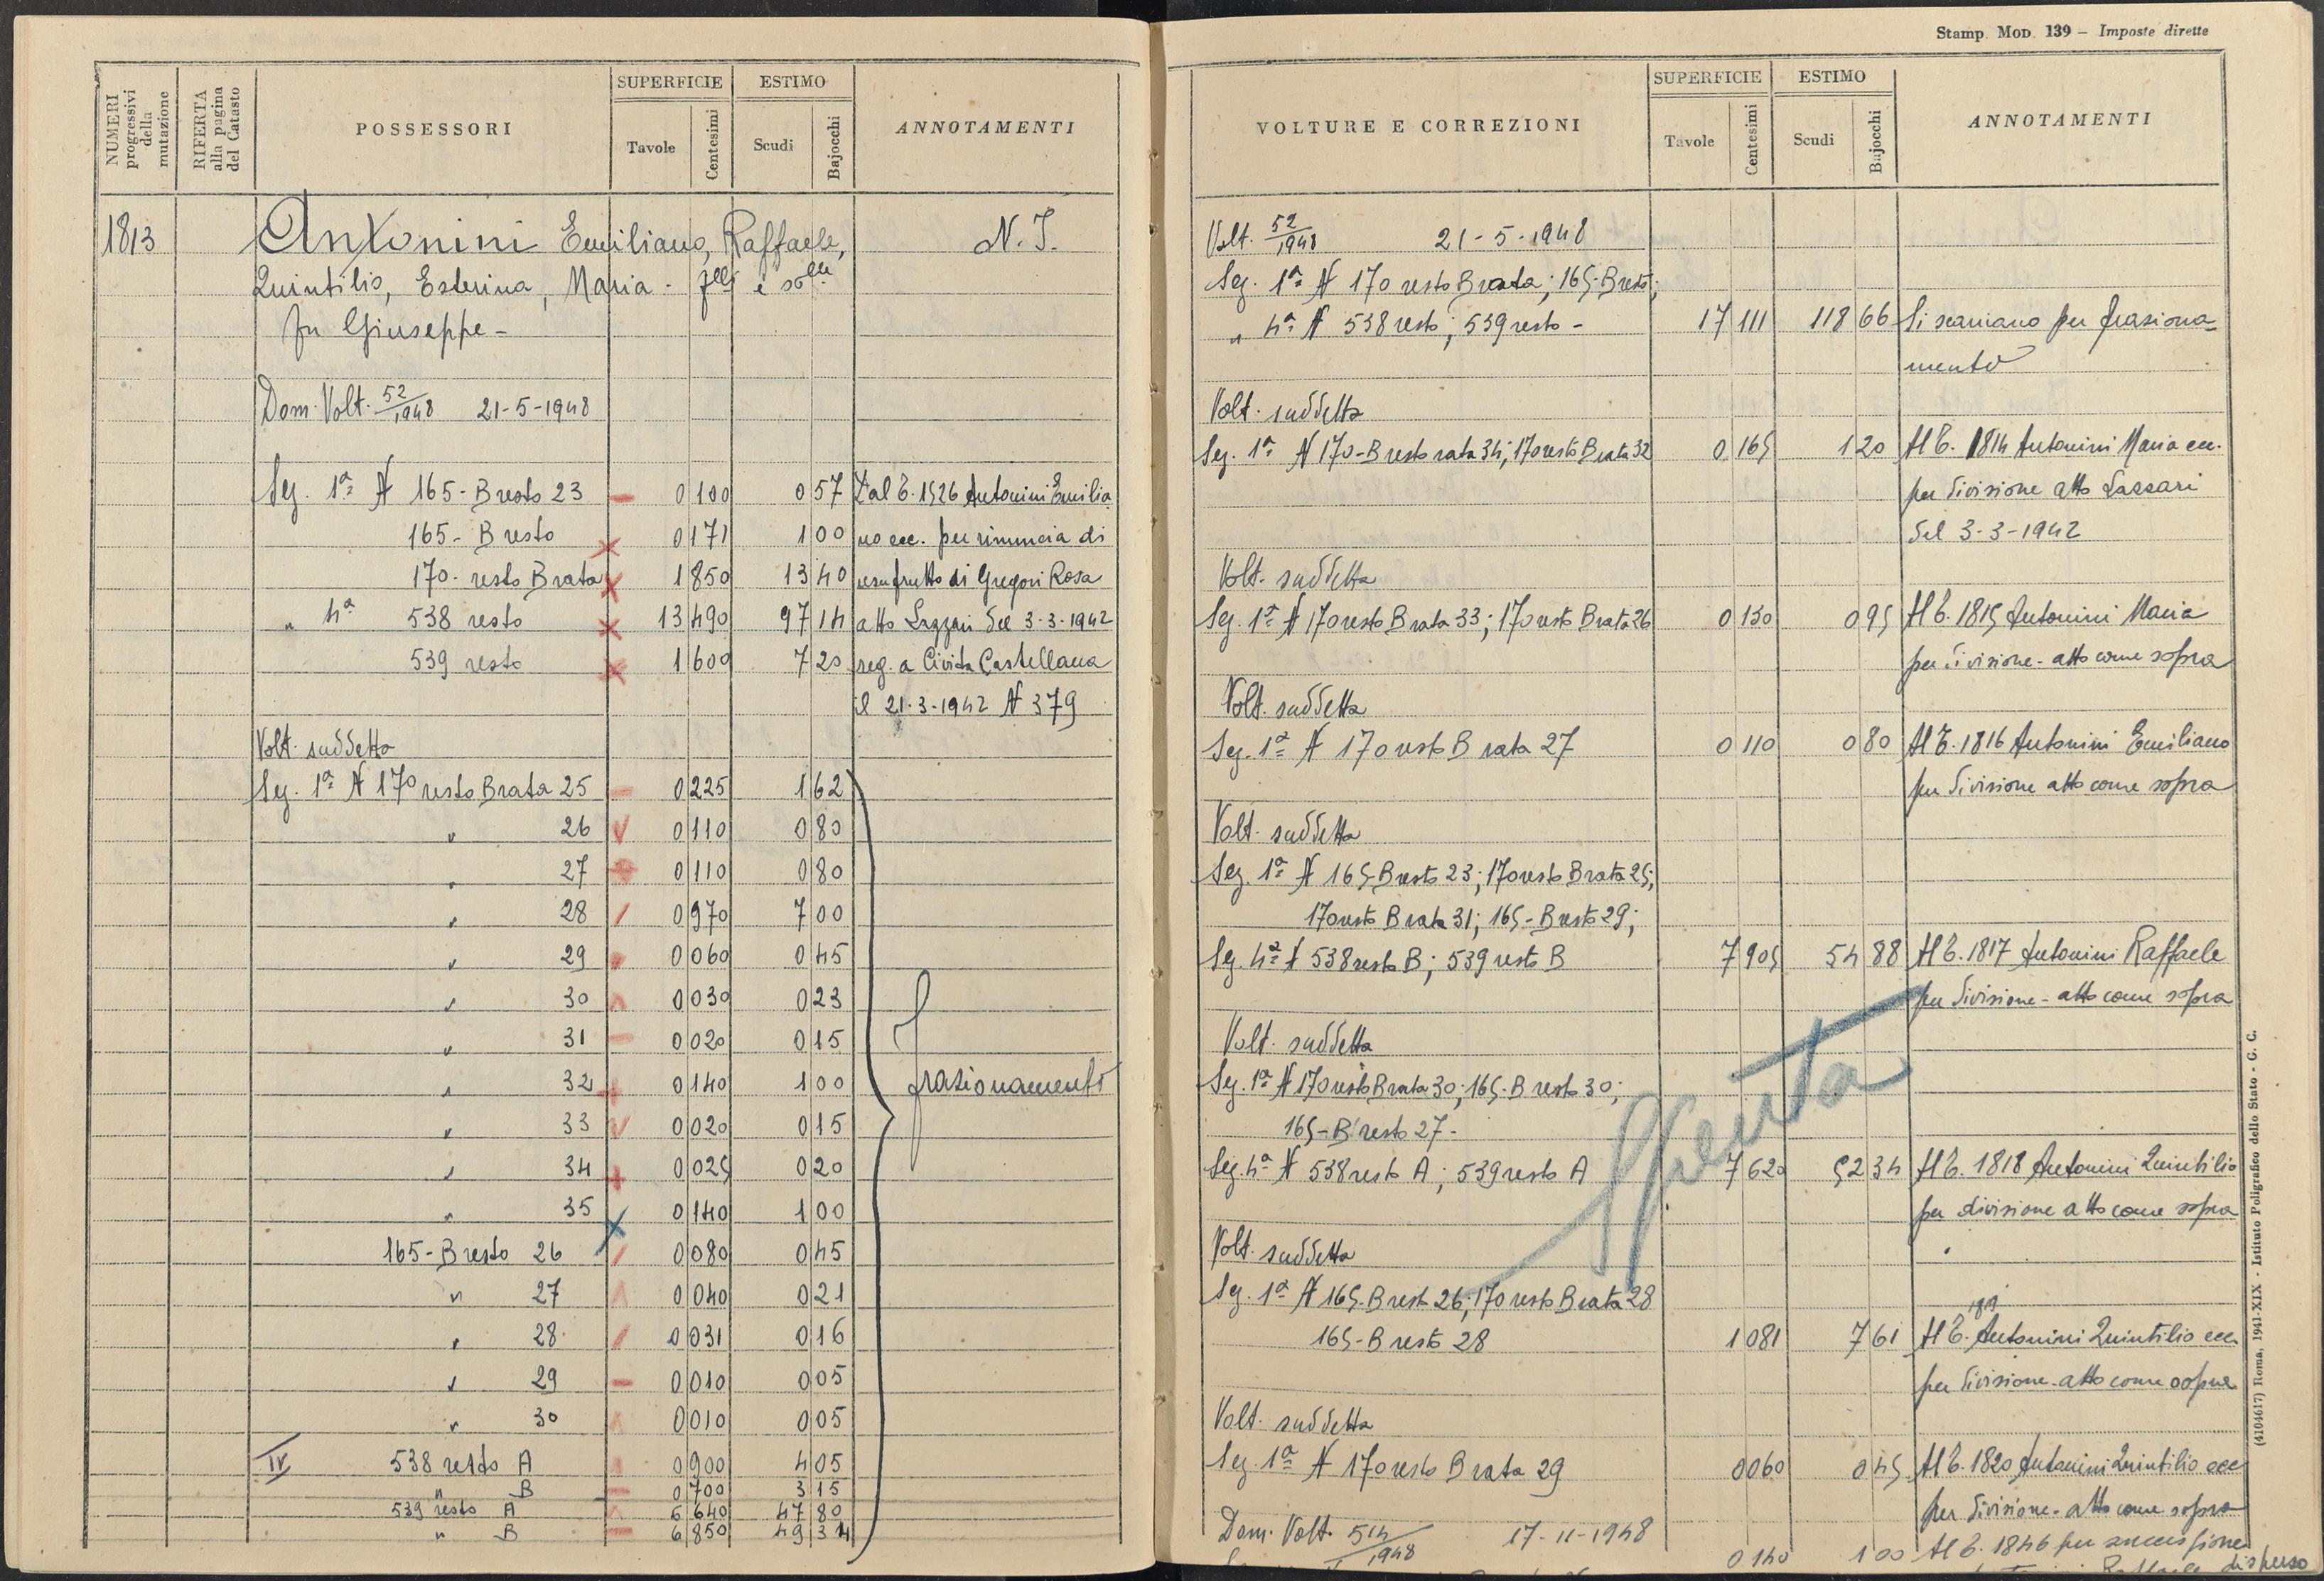 NUMERI progressivi della mutazione
RIFERTA alla pagina del Catasto
POSSESSORI
SUPERFICIE
Tavole
Centesimi
ESTIMO
Scudi
Bajocchi
ANNOTAMENTI
1813 Antonini Emiliano, Raffaele, N. I.
Quintilio, Esterina, Maria - flli e slle
fu Giuseppe -
Dom. Volt. 52/1948 21-5-1948
Sez. 1ª N 165-B resto 23 0 100 0 57 Dal T. 1526 Antonini Emilia
165- B resto 0 171 1 00 no ecc. per rinuncia di
170- resto B rata 1 850 13 40 usufrutto di Gregori Rosa
" 4ª 538 resto 13 490 97 14 atto Lazzari del 3-3-1942
539 resto 1 600 7 20 reg. a Civita Castellana
il 21-3-1942 N 379
Volt. suddetta
Sez. 1ª N 170 resto B rata 25 0 225 1 62
" 26 0 110 0 80
" 27 0 110 0 80
" 28 0 970 7 00
" 29 0 060 0 45
" 30 0 030 0 23
" 31 0 020 0 15
" 32 0 140 1 00 frazionamento
" 33 0 020 0 15
" 34 0 025 0 20
" 35 0 140 1 00
165-B resto 26 0 080 0 45
" 27 0 040 0 21
" 28 0 031 0 16
" 29 0 010 0 05
" 30 0 010 0 05
IV 538 resto A 0 900 4 05
" B 0 700 3 15
539 resto A 6 640 47 80
" B 6 850 49 34
Stamp. Mod. 139 - Imposte dirette
VOLTURE E CORREZIONI
SUPERFICIE
Tavole
Centesimi
ESTIMO
Scudi
Bajocchi
ANNOTAMENTI
Volt. 52/1948 21-5-1948
Sez. 1ª N 170 resto B rata; 165-B resto;
" 4ª N 538 resto; 539 resto - 17 111 118 66 Si scaricano per fraziona-
mento
Volt. suddetta
Sez. 1ª N 170-B resto rata 34; 170 resto B rata 32 0 165 1 20 Al T. 1814 Antonini Maria ecc.
per divisione atto Lazzari
del 3-3-1942
Volt. suddetta
Sez. 1ª N 170 resto B rata 33; 170 resto B rata 26 0 130 0 95 Al T. 1815 Antonini Maria
per divisione - atto come sopra
Volt. suddetta
Sez. 1ª N 170 resto B rata 27 0 110 0 80 Al T. 1816 Antonini Emiliano
per divisione atto come sopra
Volt. suddetta
Sez. 1ª N 165-B resto 23; 170 resto B rata 25;
170 resto B rata 31; 165-B resto 29;
Sez. 4ª N 538 resto B; 539 resto B 7 905 54 88 Al T. 1817 Antonini Raffaele
per divisione - atto come sopra
Volt. suddetta
Sez. 1ª N 170 resto B rata 30; 165-B resto 30;
165-B resto 27-
Sez. 4ª N 538 resto A; 539 resto A 7 620 52 34 Al T. 1818 Antonini Quintilio
per divisione atto come sopra
Spenta
Volt. suddetta
Sez. 1ª N 165-B resto 26; 170 resto B rata 28
165-B resto 28 1 081 7 61 Al T. 1819 Antonini Quintilio ecc.
per divisione - atto come sopra
Volt. suddetta
Sez. 1ª N 170 resto B rata 29 0 060 0 45 Al T. 1820 Antonini Quintilio ecc
per divisione - atto come sopra
Dom. Volt. 514/1948 17-11-1948
0 140 1 00 Al T. 1846 per successione
Raffaele disperso
(4104617) Roma, 1941-XIX - Istituto Poligrafico dello Stato - G. C.